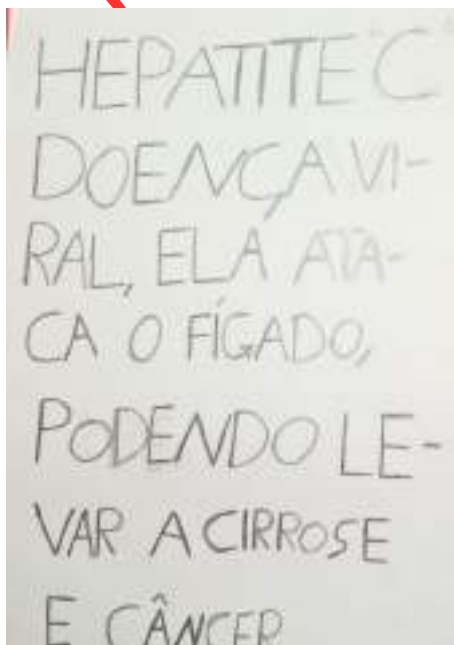 HEPATITE "C"
DOENÇA VI-
RAL, ELA ATA-
CA O FÍGADO,
PODENDO LE-
VAR A CIRROSE
E CÂNCER